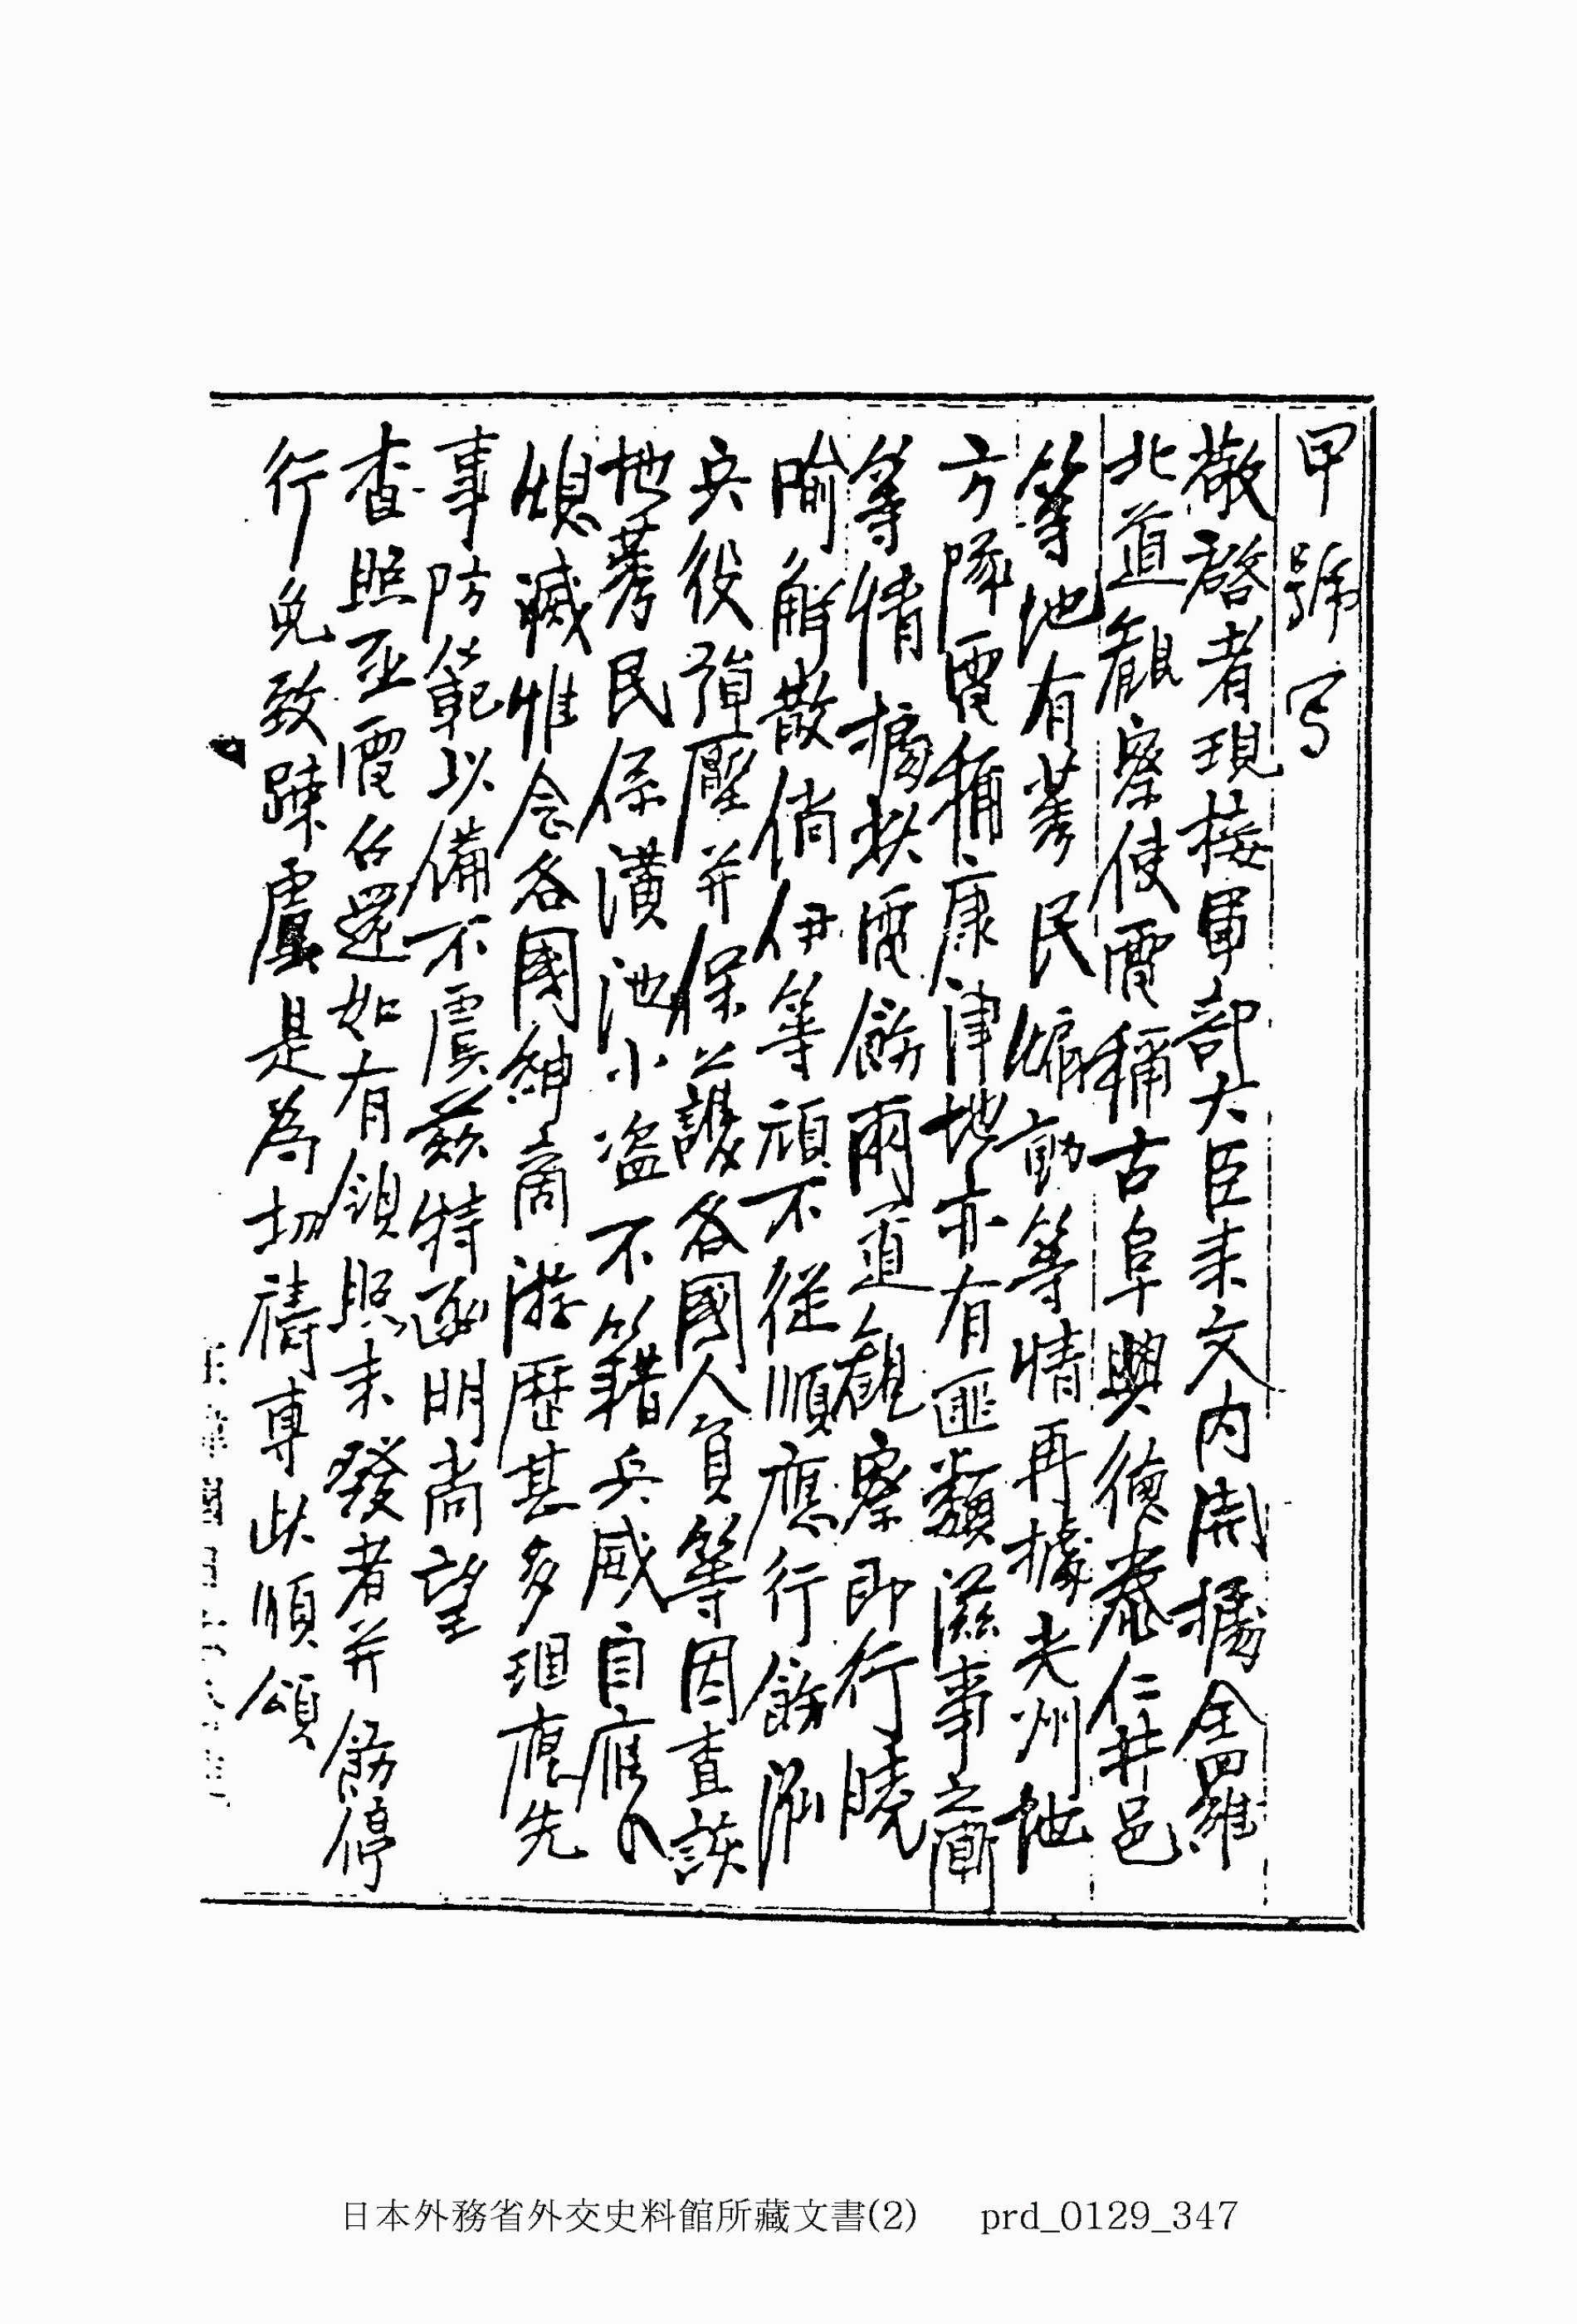 甲號写
敬啓者現接軍部大臣来文内開據全羅
北道觀察使電稱古阜興德泰仁井邑
等地有莠民煽動等情再據光州地
方隊電稱康津地亦有匪類滋事之
等情據此電飭兩道觀察即行曉
喻解散倘伊等頑不從順應行飭派
兵役彈壓并保護各國人員等因查該
地莠民係潢池小盜不籍兵威自應卜
熄滅惟念各國紳商游歷甚多理應先
事防範以備不虞茲特函明尚望
查照並電召還如有領照未發者并飭停
行免致疎虞是為切禱専此順頌
日本外務省外交史料館所藏文書(2) prd_0129_347